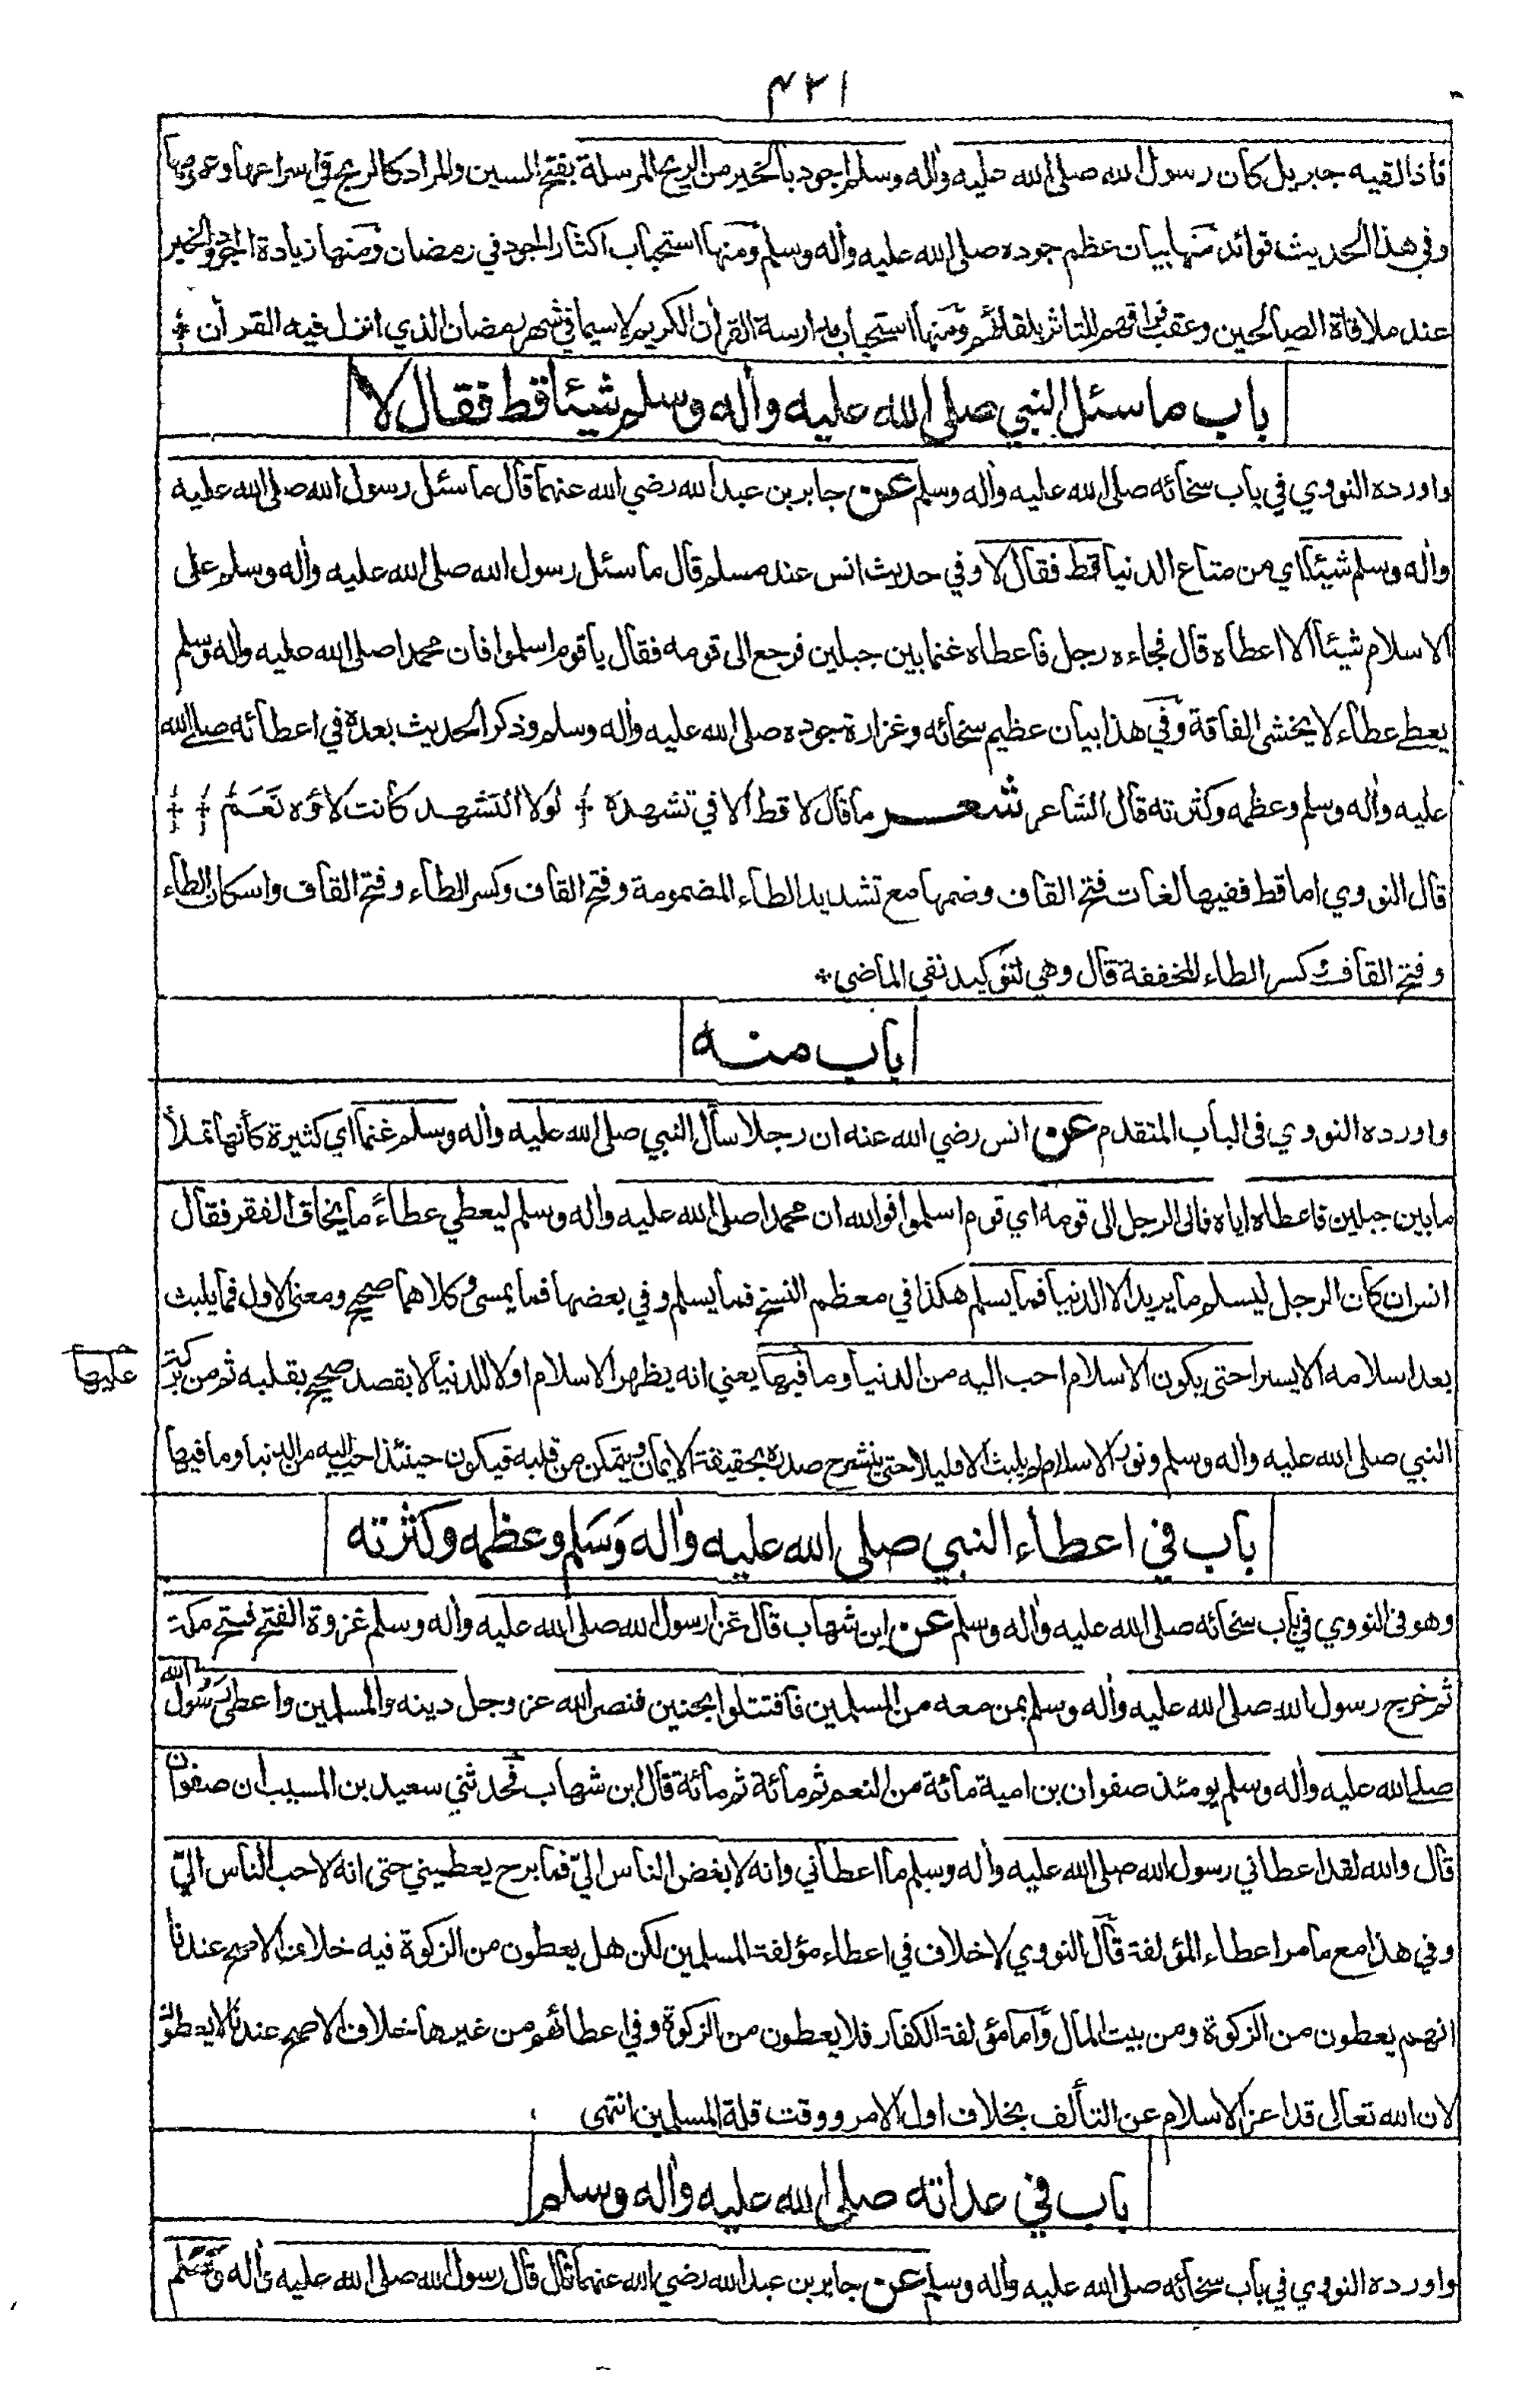 ٤٢١
فاذا لقيه جبريل كان رسول الله صلى الله عليه واٰله وسلم اجود بالخير من الريح المرسلة بفتح السين والمراد كالريح في اسراعها وعمومها
وفي هذا الحديث فوائد منها بيان عظم جوده صلى الله عليه واٰله وسلم ومنها استحباب اكثار الجود في رمضان ومنها زيادة الجود والخير
عند ملاقاة الصالحين وعقب فراقهم للتاثر بلقائهم ومنها استحباب مدارسة القراٰن الكريم لاسيما في شهر رمضان الذي انزل فيه القراٰن
باب ما سئل النبي صلى الله عليه واٰله وسلم شيئا قط فقال لا
واورده النووي في باب سخائه صلى الله عليه واٰله وسلم عن جابر بن عبد الله رضي الله عنهما قال ما سئل رسول الله صلى الله عليه
واٰله وسلم شيئا اي من متاع الدنيا قط فقال لا وفي حديث انس عند مسلم قال ما سئل رسول الله صلى الله عليه واٰله وسلم على
الاسلام شيئا الا اعطاه قال فجاءه رجل فاعطاه غنما بين جبلين فرجع الى قومه فقال يا قوم اسلموا فان محمدا صلى الله عليه واٰله وسلم
يعطي عطاء لا يخشى الفاقة وفي هذا بيان عظيم سخائه وغزارة جوده صلى الله عليه واٰله وسلم وذكر الحديث بعده في اعطائه صلى الله
عليه واٰله وسلم وعظمه وكثرته قال الشاعر شعر ما قال لا قط الا في تشهده لولا التشهد كانت لاؤه نَعَمُ
قال النووي اما قط ففيها لغات فتح القاف وضمها مع تشديد الطاء المضمومة وفتح القاف وكسر الطاء وفتح القاف واسكان الطاء
وفتح القاف وكسر الطاء المخففة قال وهي لتوكيد نفي الماضي
باب منه
واورده النووي في الباب المتقدم عن انس رضي الله عنه ان رجلا سأل النبي صلى الله عليه واٰله وسلم غنما اي كثيرة كأنها تملأ
ما بين جبلين فاعطاه اياه فاتى الرجل الى قومه اي قوم اسلموا فوالله ان محمدا صلى الله عليه واٰله وسلم ليعطي عطاءً ما يخاف الفقر فقال
انس ان كان الرجل ليسلم ما يريد الا الدنيا فما يسلم هكذا في معظم النسخ فما يسلم وفي بعضها فما يمسي وكلاهما صحيح ومعنى الاول فما يلبث
بعد اسلامه الا يسيرا حتى يكون الاسلام احب اليه من الدنيا وما فيها يعني انه يظهر الاسلام اولا للدنيا لا بقصد صحيح بقلبه ثم من بركة
عليها
النبي صلى الله عليه واٰله وسلم ونور الاسلام لم يلبث الا قليلا حتى ينشرح صدره بحقيقة الايمان ويتمكن من قلبه فيكون حينئذ احب اليه من الدنيا وما فيها
باب في اعطاء النبي صلى الله عليه واٰله وَسَلم وعظمه وكثرته
وهو في النووي في باب سخائه صلى الله عليه واٰله وسلم عن ابن شهاب قال غزا رسول الله صلى الله عليه واٰله وسلم غزوة الفتح فتح مكة
ثم خرج رسول الله صلى الله عليه واٰله وسلم بمن معه من المسلمين فاقتتلوا بحنين فنصر الله عز وجل دينه والمسلمين واعطى رسول الله
صلى الله عليه واٰله وسلم يومئذ صفوان بن امية مائة من النعم ثم مائة ثم مائة قال ابن شهاب فحدثني سعيد بن المسيب ان صفوان
قال والله لقد اعطاني رسول الله صلى الله عليه واٰله وسلم ما اعطاني وانه لابغض الناس اليّ فما برح يعطيني حتى انه لاحب الناس اليّ
وفي هذا مع ما مر اعطاء المؤلفة قال النووي لا خلاف في اعطاء مؤلفة المسلمين لكن هل يعطون من الزكوة فيه خلاف الاصح عندنا
انهم يعطون من الزكوة ومن بيت المال واما مؤلفة الكفار فلا يعطون من الزكوة وفي اعطائهم من غيرها خلاف الاصح عندنا لا يعطون
لان الله تعالى قد اعز الاسلام عن التألف بخلاف اول الامر ووقت قلة المسلمين انتهى
باب في عداته صلى الله عليه واٰله وسلم
واورده النووي في باب سخائه صلى الله عليه واٰله وسلم عن جابر بن عبد الله رضي الله عنهما قال قال رسول الله صلى الله عليه واٰله وسلم